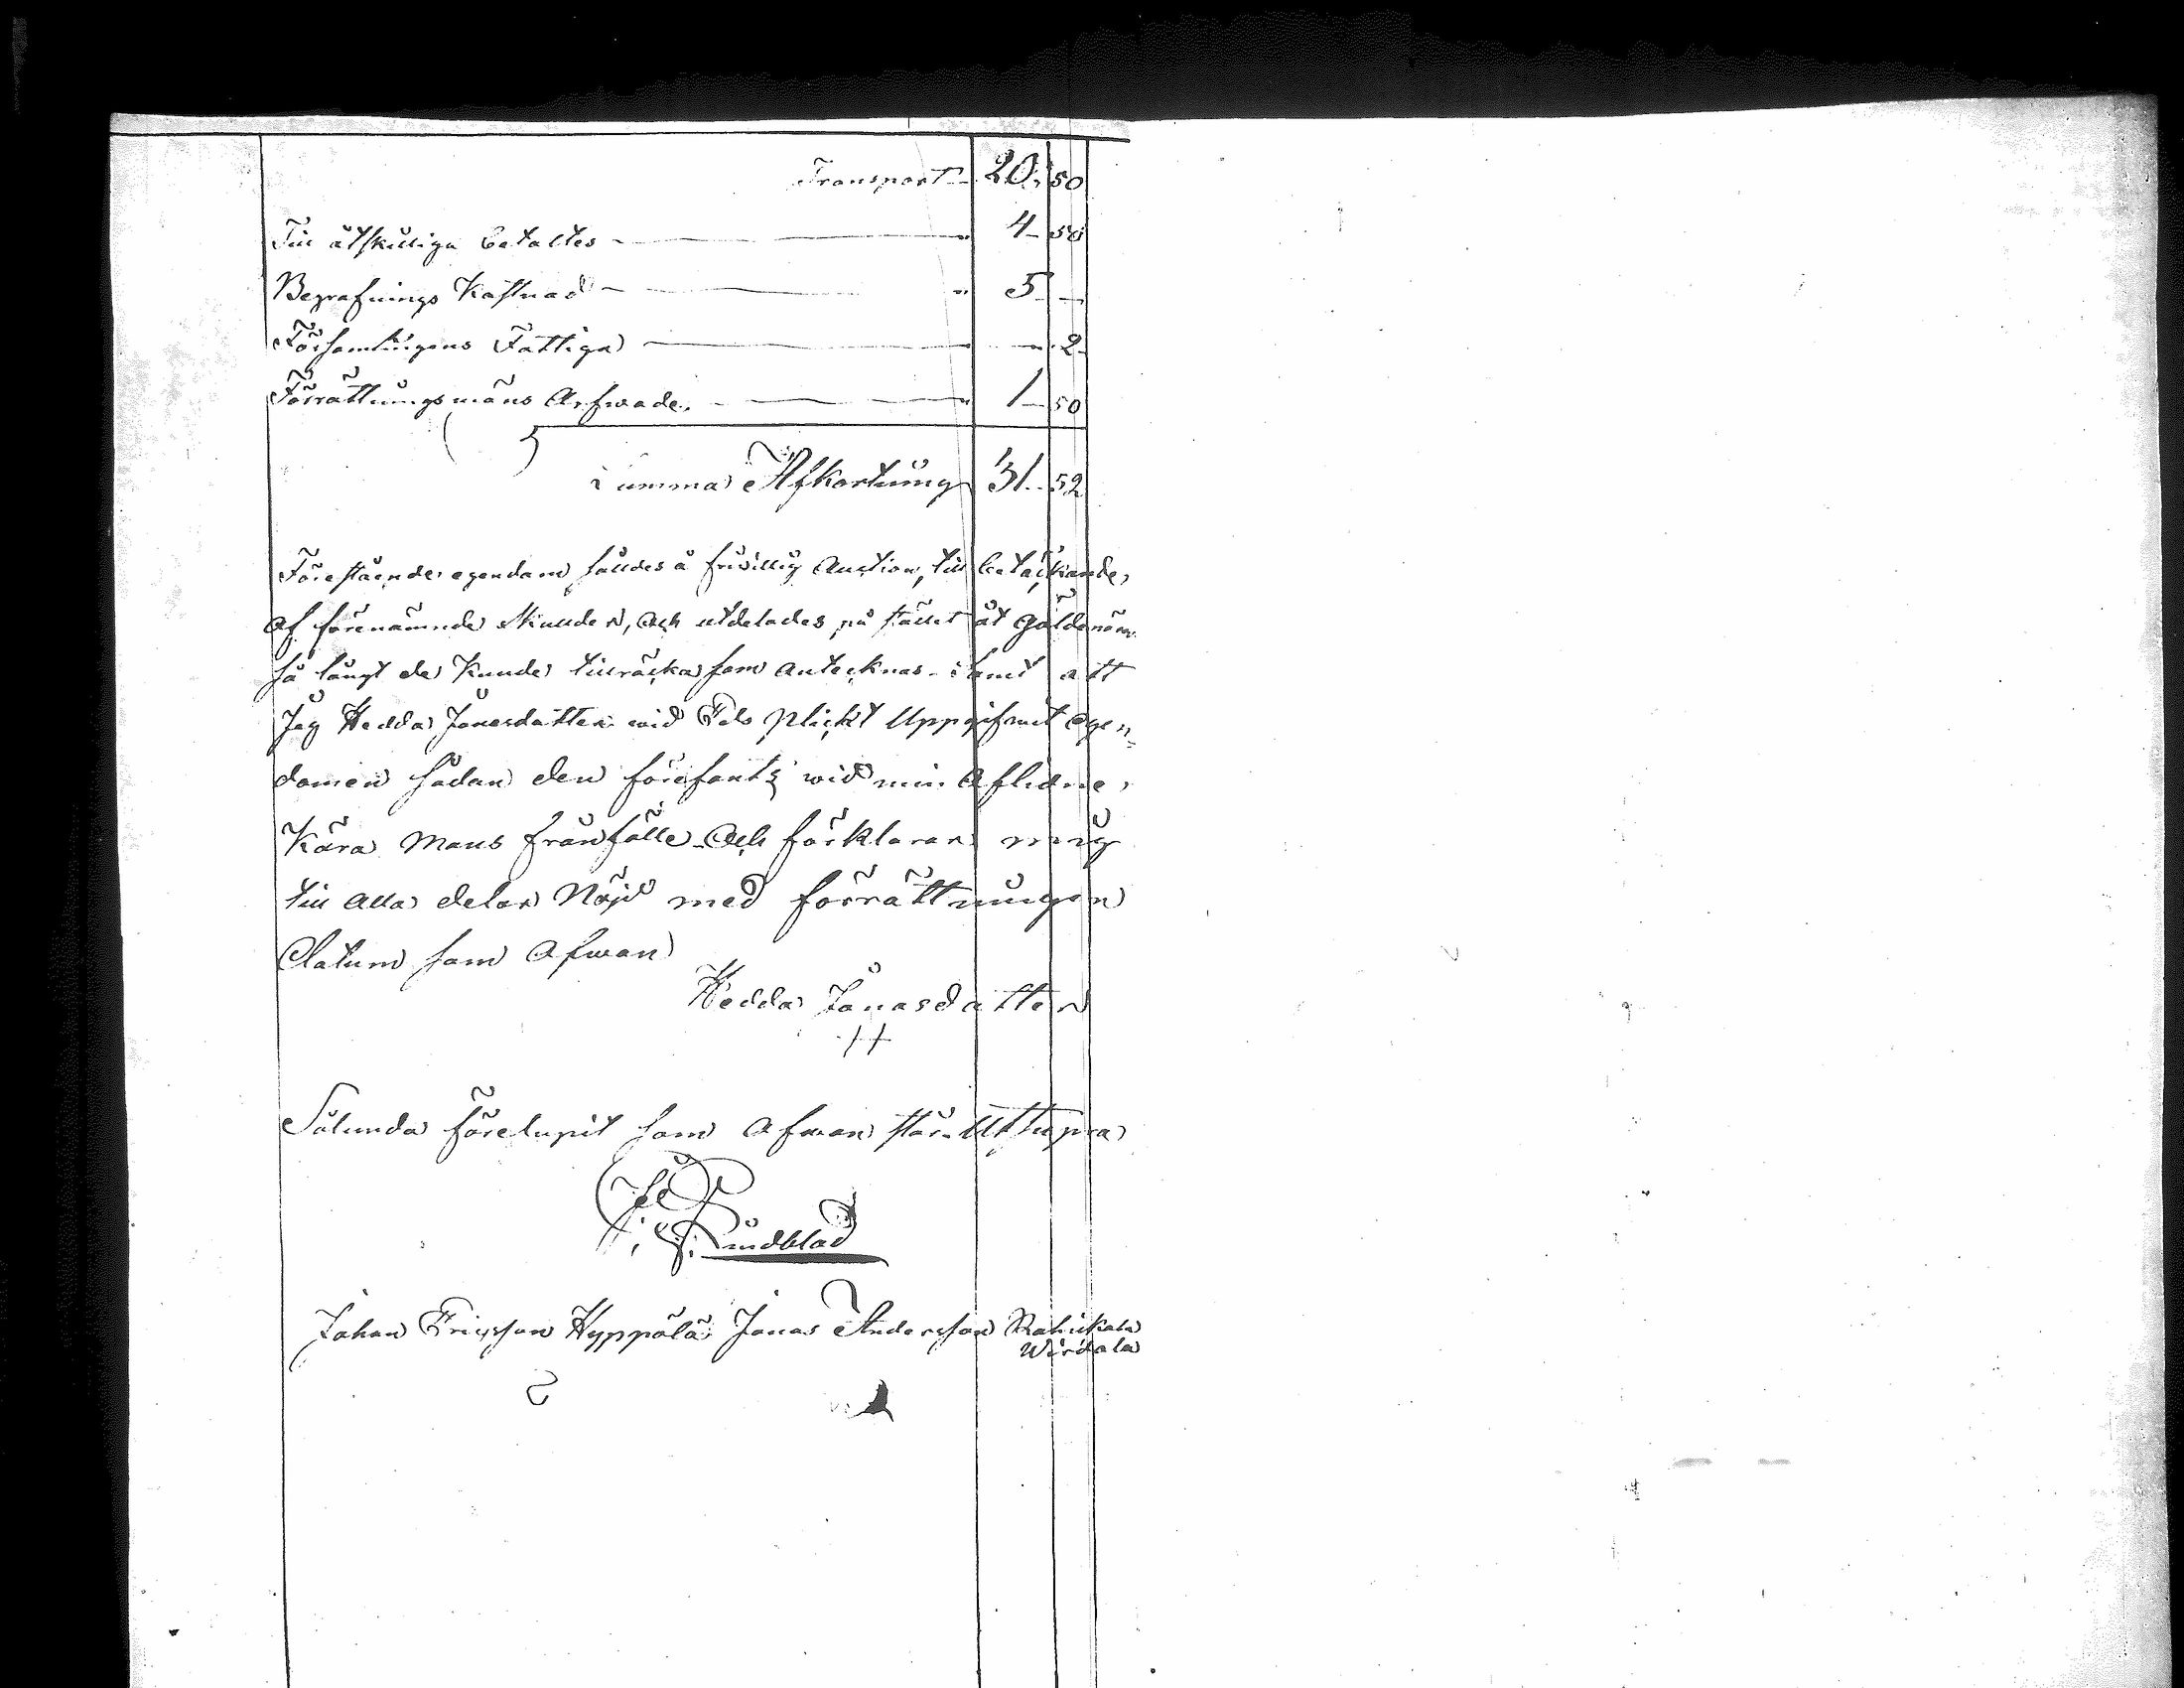 Transport 20, 50
Till åtskilliga betaltes 4 50
Begrafnings Kostnad 5 —
Församlingens Fattiga — 2
Förrättningsmäns Arfwade. 1 50
Summa Afkortning 31. 52
Förestående egendom såldes å friwillig Auction, till betäckande,
af förenämnde Skulder, Och utdelades på stället åt Gäldenärn
så långt de Kunde tillräcka som antecknas. samt att
Jag Hedda Jonasdotter wid Eds plickt Uppgifwit egen
domen sådan den förefants wid min Aflidne,
Kära Mans frånfälle Och förklarar mig
till alla delar Nöjd med förrättningen
Datum som Ofwan
Hedda Jonasdotter
Sålunda förelupit som Ofwan står. Ut supra
Lindblad
Johan Ericsson Hyppölä Jonas Andersson Rahikala
Wirdala